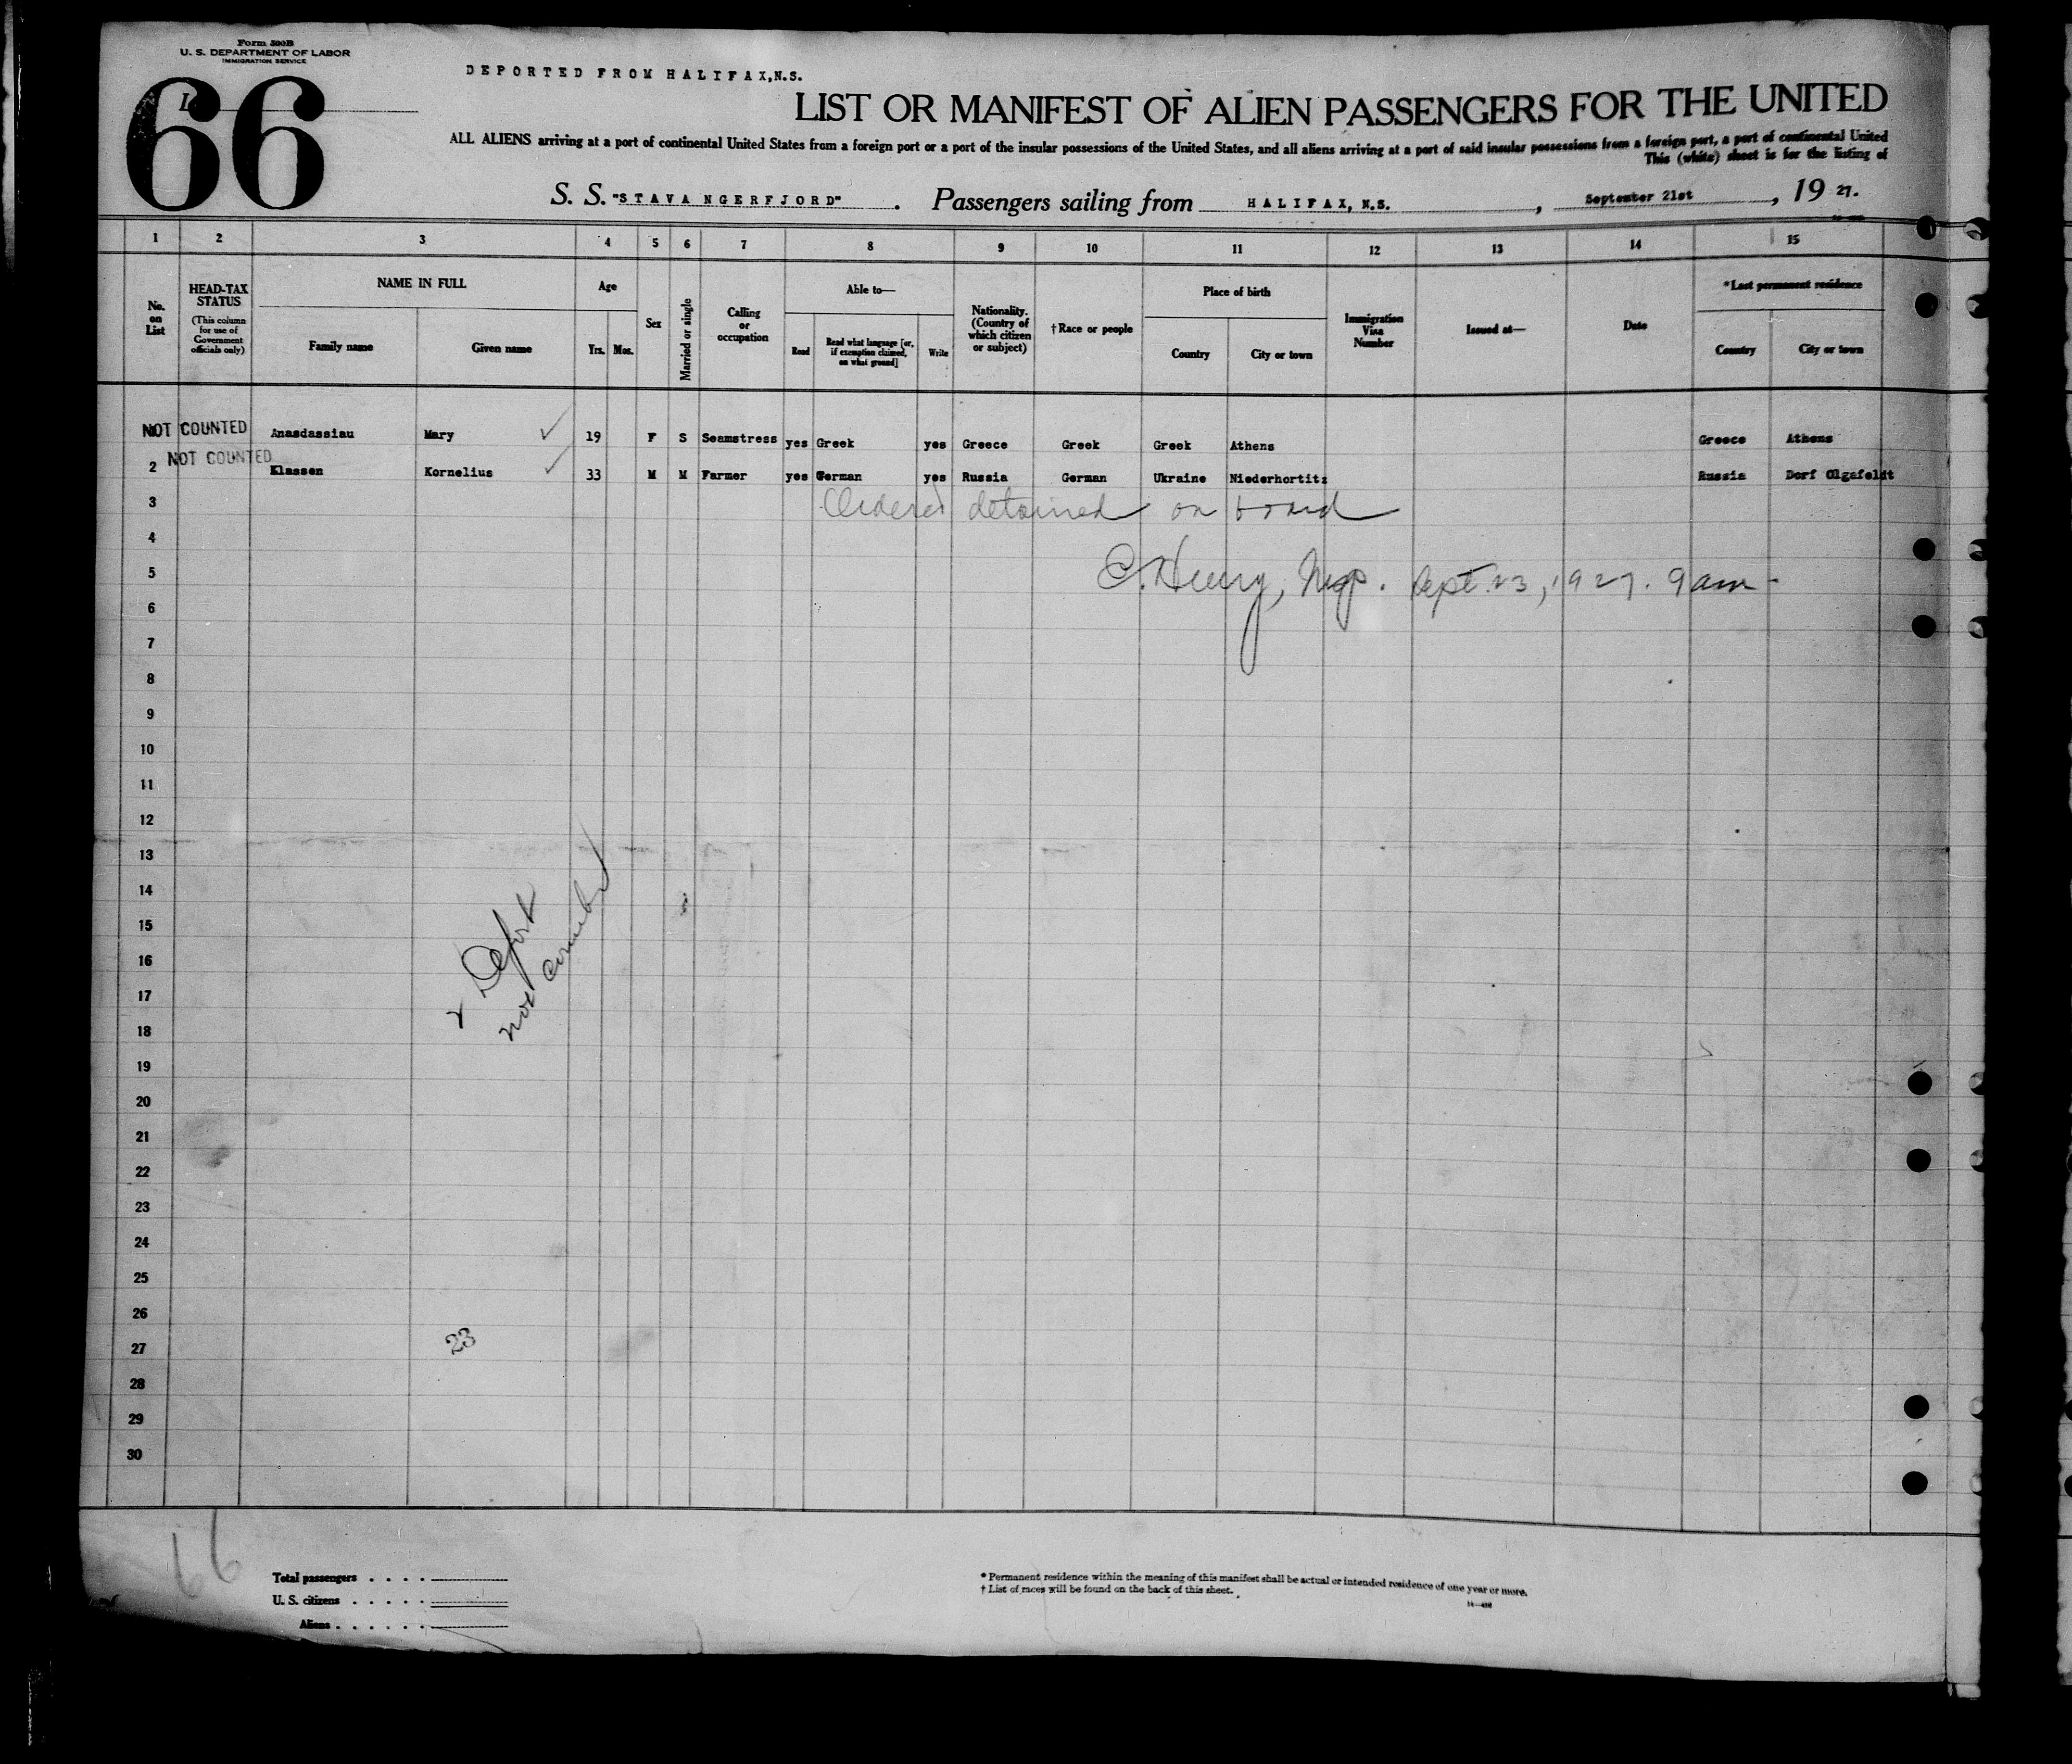 Form 500B
U. S. DEPARTMENT OF LABOR
IMMIGRATION SERVICE
66
DEPORTED FROM HALIFAX,N.S.
LIST OR MANIFEST OF ALIEN PASSENGERS FOR THE UNITED
ALL ALIENS arriving at a port of continental United States from a foreign port or a port of the insular possessions of the United States, and all aliens arriving at a port of said insular possessions from a foreign port, a port of continental United
This (white) sheet is for the listing of
S. S. "STAVANGERFJORD" . Passengers sailing from HALIFAX, N.S. , September 21st , 19 27.
1 2 3 4 5 6 7 8 9 10 11 12 13 14 15
No. on List
HEAD-TAX STATUS (This column for use of Government officials only)
NAME IN FULL Family name Given name
Age Yrs. Mos.
Sex
Married or single
Calling or occupation
Able to— Read Read what language [or, if exemption claimed, on what ground] Write
Nationality. (Country of which citizen or subject)
†Race or people
Place of birth Country City or town
Immigration Visa Number
Issued at—
Date
*Last permanent residence Country City or town
NOT COUNTED Anasdassiau Mary 19 F S Seamstress yes Greek yes Greece Greek Greek Athens Greece Athens
2 NOT COUNTED Klassen Kornelius 33 M M Farmer yes German yes Russia German Ukraine Niederhortitz Russia Dorf Olgafeldt
3 Ordered detained on board
4
5 Sept. 23, 1927. 9 am
6
7
8
9
10
11
12
13
14
15
16
17
18
19
20
21
22
23
24
25
26
27
28
29
30
2 Deport
not counted
23
66
Total passengers . . . .
U. S. citizens . . . . .
Aliens . . . . . .
* Permanent residence within the meaning of this manifest shall be actual or intended residence of one year or more.
† List of races will be found on the back of this sheet.